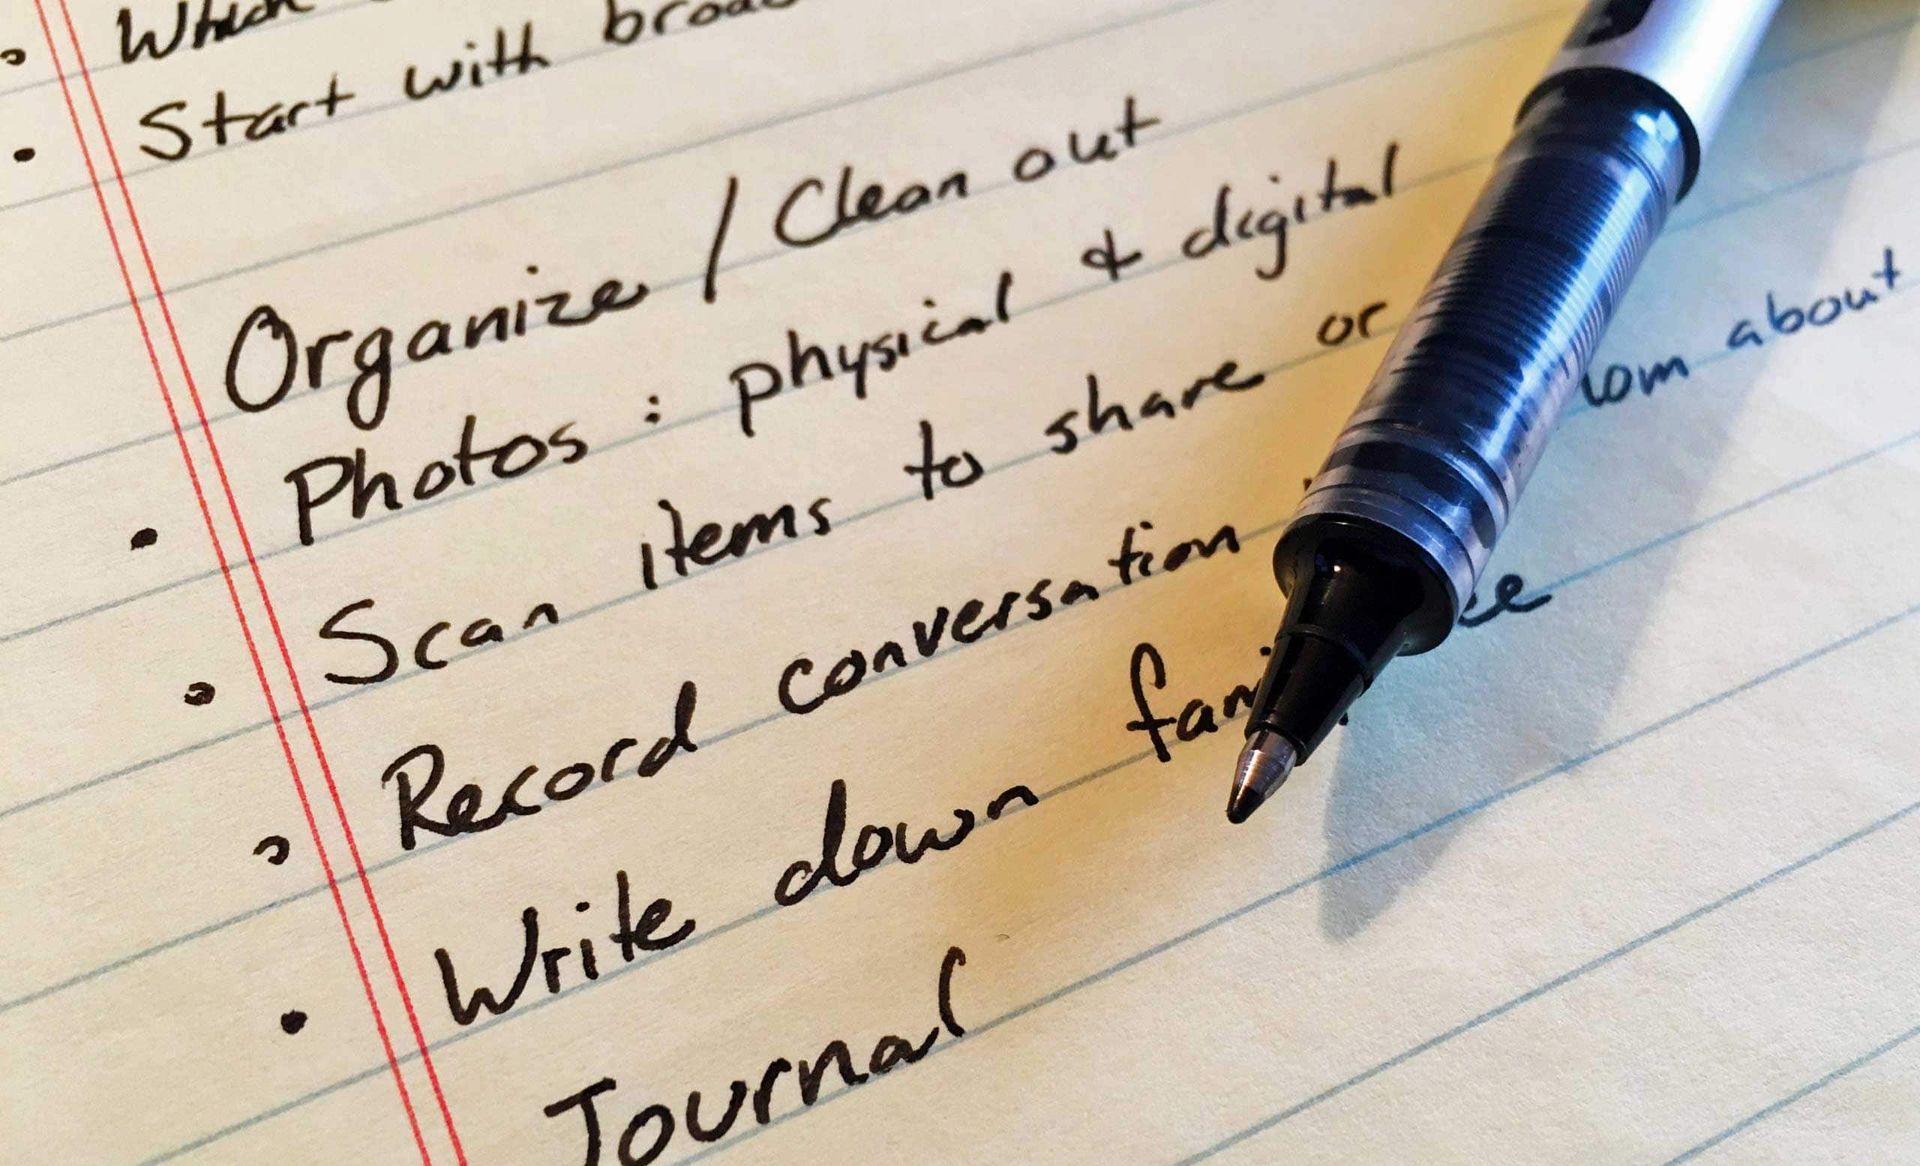 • Which
• Start with broad
Organize / Clean out
• Photos : physical & digital
• Scan items to share or
• Record conversation about
• Write down
Journal